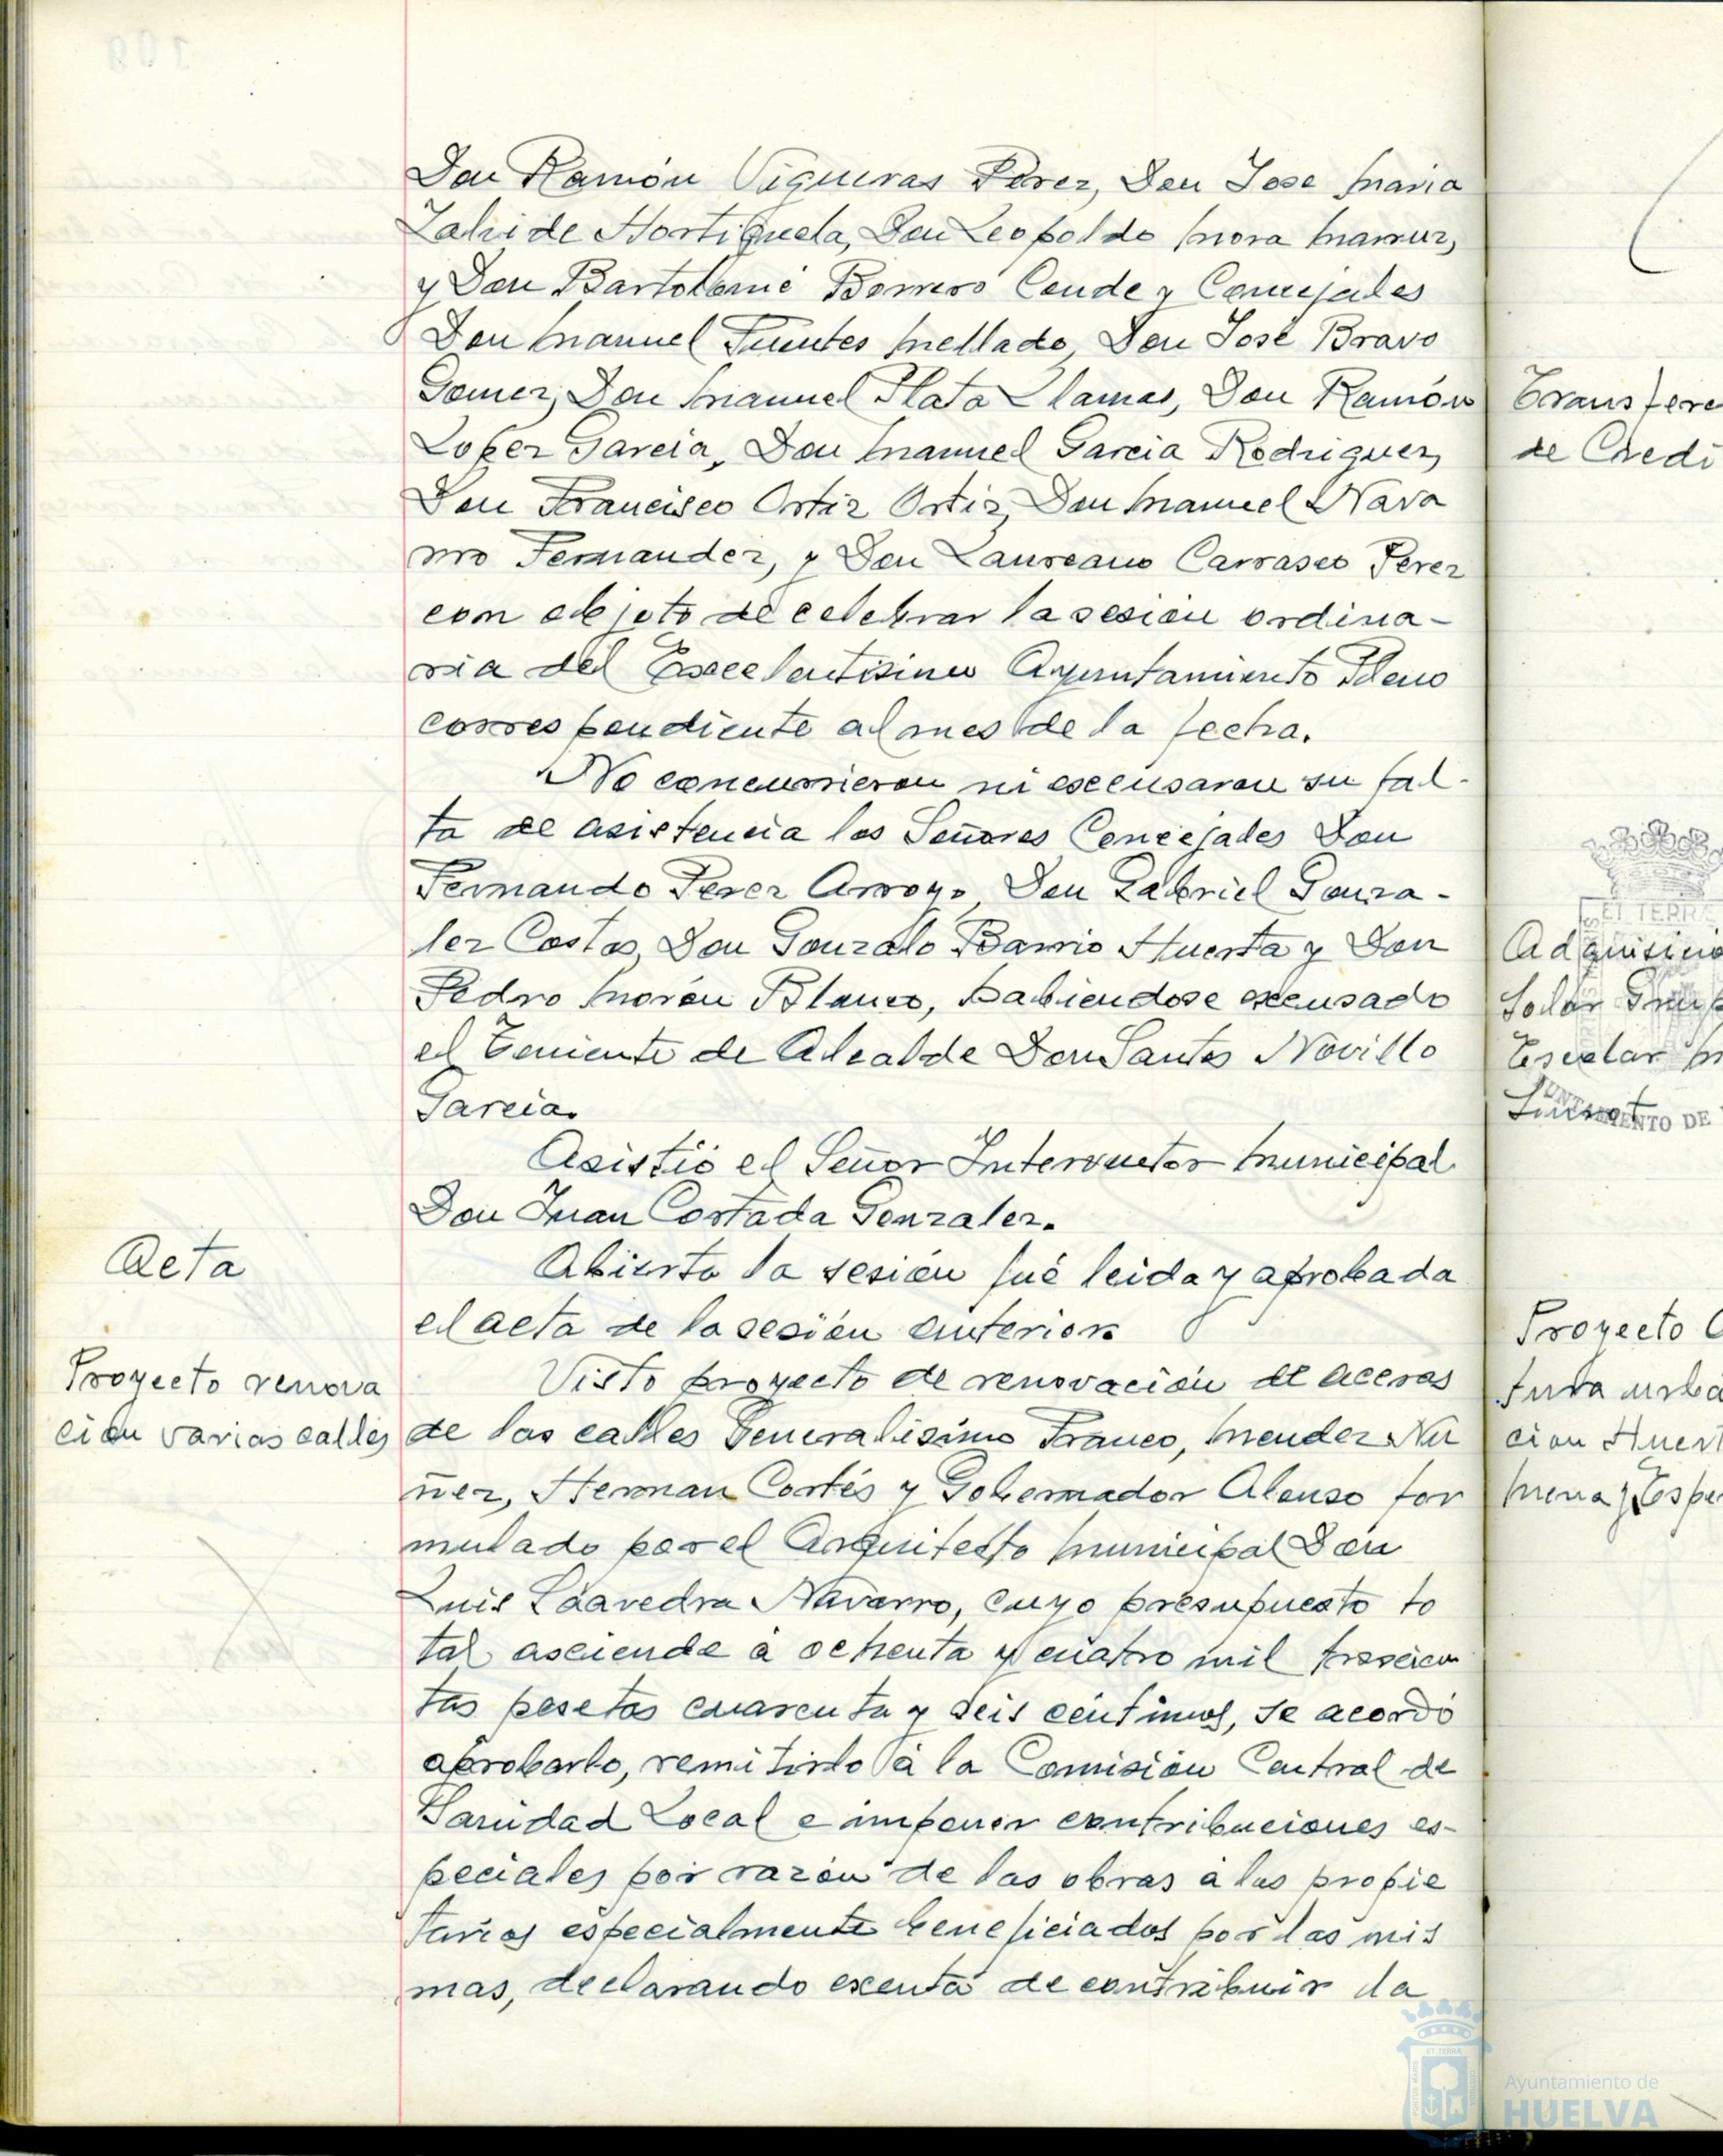 Don Ramón Vigueras Perez, Don Jose Maria
Zalvide Hortiguela, Don Leopoldo Mora
y Don Bartolomé Borrero Conde y Concejales
Don Manuel Fuentes Mellado, Don José Bravo
Gomez, Don Manuel Plata Llamas, Don Ramón
Lopez Garcia, Don Manuel Garcia Rodriguez,
Don Francisco Ortiz Ortiz, Don Manuel Nava
rro Fernandez, y Don Laureano Carrasco Perez
con objeto de celebrar la sesión ordina-
ria del Excelentisimo Ayuntamiento Pleno
correspondiente al mes de la fecha.
No concurrieron ni excusaron su fal-
ta de asistencia los Señores Concejales Don
Fernando Perez Arroyo, Don Gabriel Gonza-
lez Costas, Don Gonzalo Barrio Huerta y Don
Pedro Morón Blanco, habiendose excusado
el Teniente de Alcalde Don Santos Novillo
Garcia.
Asistió el Señor Interventor Municipal
Don Juan Costada Gonzalez.
Acta
Abierta la sesión fué leida y aprobada
el acta de la sesión anterior.
Proyecto renova
ción varias calles
Visto proyecto de renovación de aceras
de las calles Generalisimo Franco, Mendez Nu
ñez, Hernan Cortés y Gobernador Alonso for
mulado por el Arquitecto Municipal Don
Luis Saavedra Navarro, cuyo presupuesto to
tal asciende a ochenta y cuatro mil trescien
tas pesetas cuarenta y seis céntimos, se acordó
aprobarlo, remitirlo a la Comisión Central de
Sanidad Local e imponer contribuciones es-
peciales por razón de las obras a los propie
tarios especialmente beneficiados por las mis
mas, declarando exenta de contribuir la
Transfere
de Credi
ET TERRA
Adquisicio
Solar Grup
Escolar
Proyecto
tura urba
cion Huert
Mena y Espe
Ayuntamiento de
HUELVA